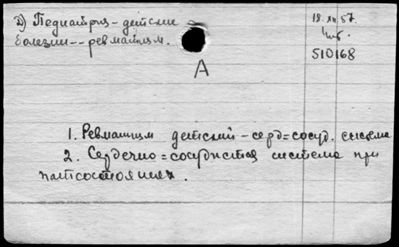 Д) Педиатрия - детские
болезни -- ревматизм.
18.XII.57.
510168
А
1. Ревматизм детский - серд=сосуд. система
2. Сердечно=сосудистая система при
патсостояниях.